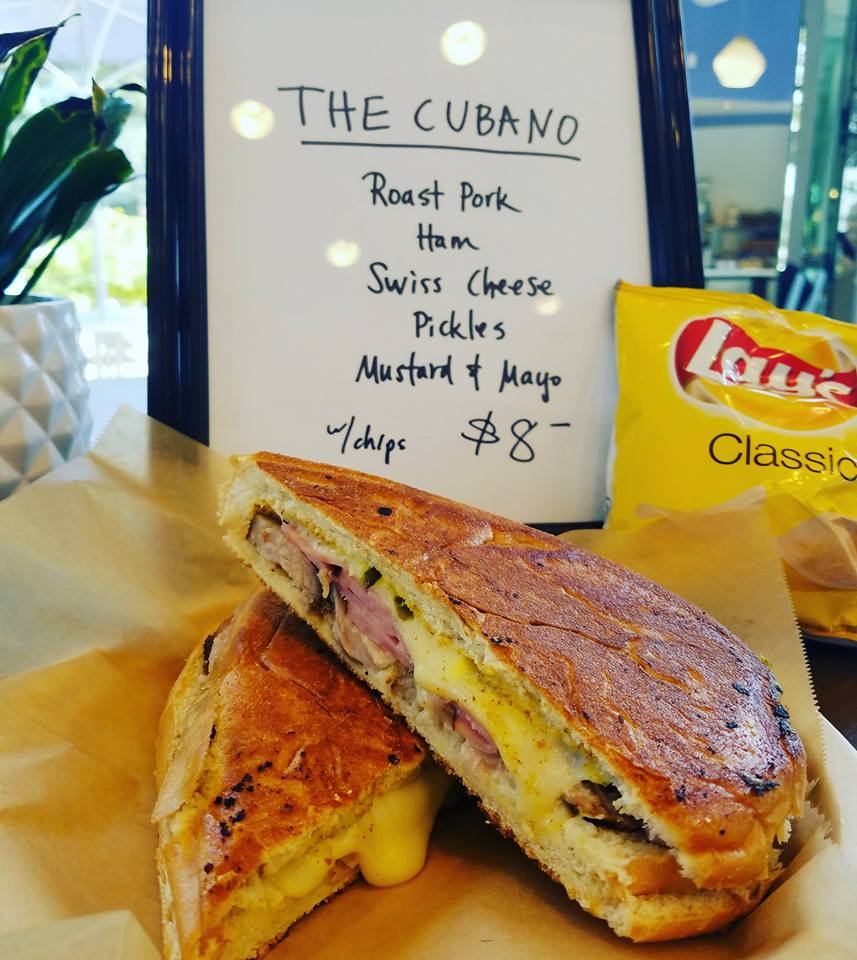 THE CUBANO
Roast Pork
Ham
Swiss Cheese
Pickles
Mustard & Mayo
w/chips $8-
Lay's
Classic